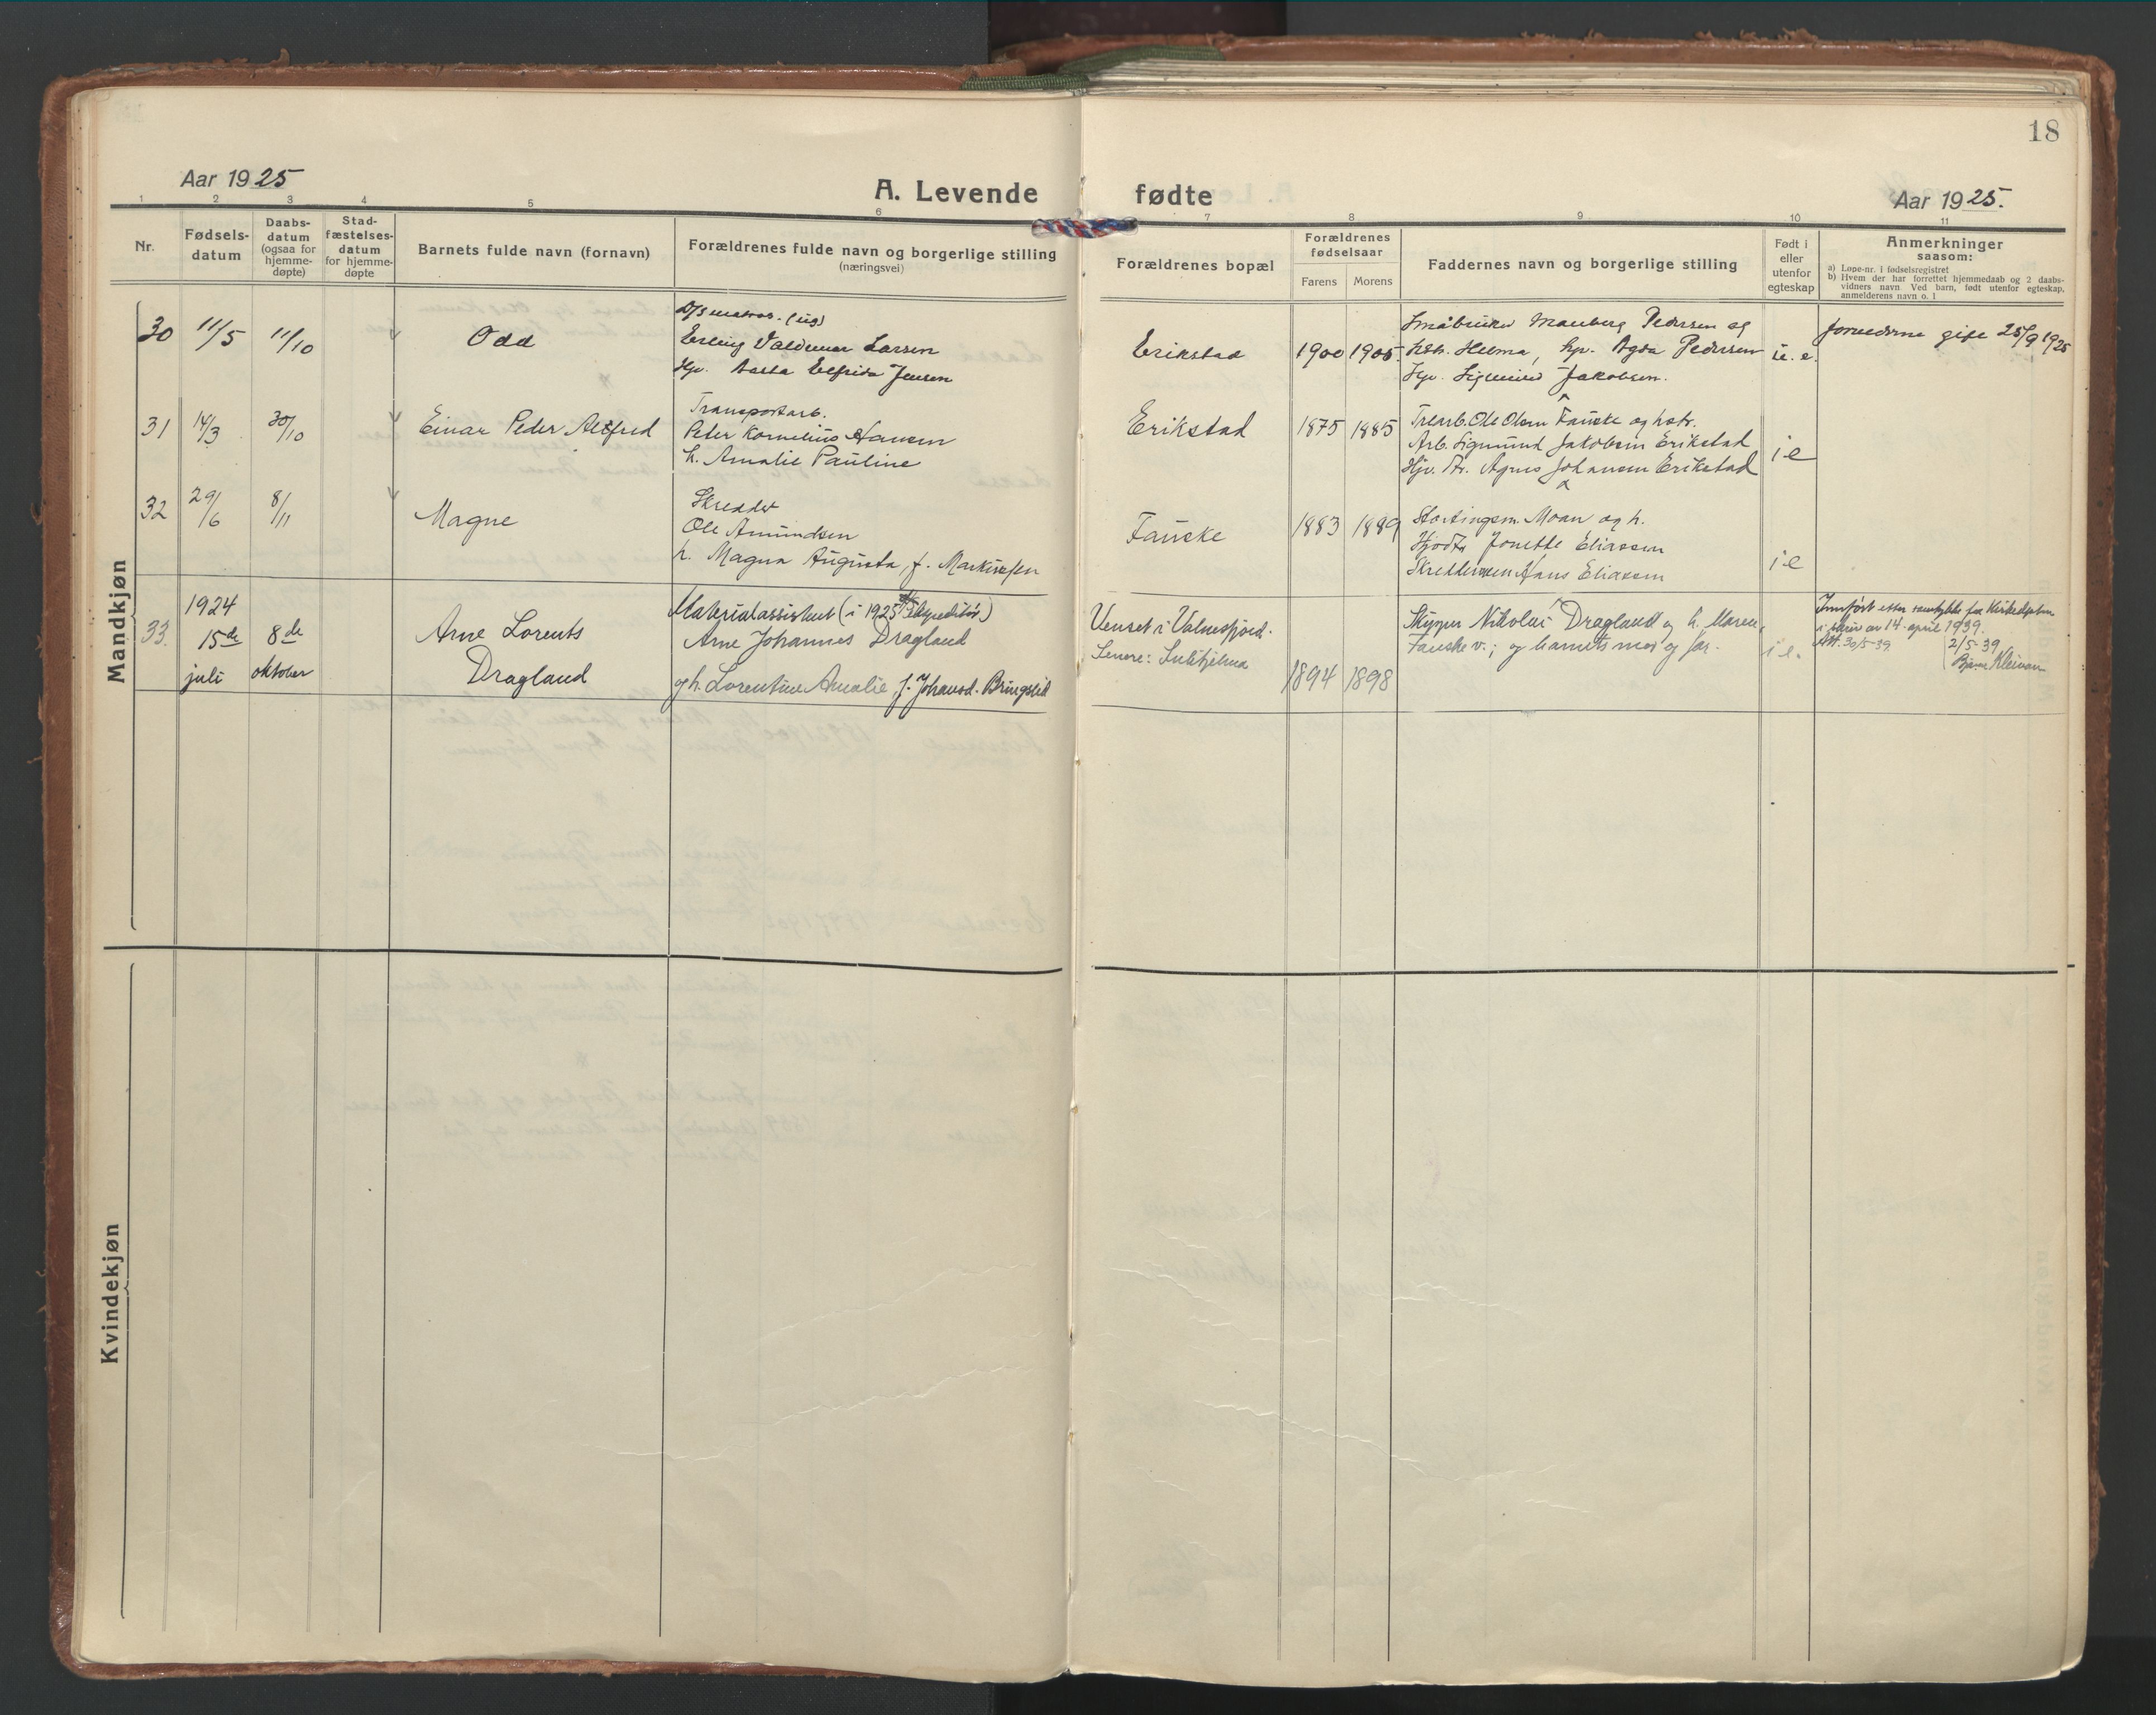 18
Aar 1925
A. Levende fødte
Aar 1925.
1 2 3 4 5 6 7 8 9 10 11
Nr.
Fødsels-
datum
Daabs-
datum
(ogsaa for
hjemme-
døpte)
Stad-
fæstelses-
datum
for hjemme-
døpte
Barnets fulde navn (fornavn)
Forældrenes fulde navn og borgerlige stilling
(næringsvei)
Forældrenes bopæl
Forældrenes
fødselsaar
Farens Morens
Faddernes navn og borgerlige stilling
Født i
eller
utenfor
egteskap
Anmerkninger
saasom:
a) Løpe-nr. i fødselsregistret
b) Hvem der har forrettet hjemmedaab og 2 daabs-
vidners navn. Ved barn, født utenfor egteskap,
anmelderens navn o. l
Mandkjøn
30 11/5 11/10 Odd
D/S matros. (ug)
Erling Valdemar Larsen
Hp. Aasta Elfrida Jensen
Erikstad 1900 1905.
Småbruker Manberg Pedersen og
hstr. Helma, hp. Agda Pedersen
Hp. Sigmund Jakobsen.
u. e.
forældrene gift 25/9 1925
31 14/3 30/10 Einar Peder Alfred
Transportarb.
Peter Kornelius Hansen
h. Amalie Pauline
Erikstad 1875 1885
Trearb. Ole Olsen Fauske og hstr.
Arb. Sigmund Jakobsen Erikstad
Hjv. Str. Agnes Johansen Erikstad
i e
32 29/6 8/11 Magne
Skredder
Ole Amundsen
h. Magna Augusta, f. Markussen
Fauske 1883 1889
Stortingsm. Moan og h.
Hjvdtr Jonette Eliassen
Skreddersven Hans Eliassen
i e
33. 1924
15de
juli
8de
oktober
Arne Lorents
Dragland
Materialassistent (i 1925 Ekspeditør)
Arne Johannes Dragland
og h. Lorentine Amalie f. Johansd. Bringslid
Venset i Valnesfjord.
Senere: Sulitjelma
1894 1898
Skipper Nikolai Dragland og h. Maren,
Fauske v.; og barnets mor og far.
i e.
Innført efter samtykke fra Kirkedeptm
i skriv av 14. april 1939.
Att. 30/5-39
2/5-39
Bjarne Kleivan
Kvindekjøn